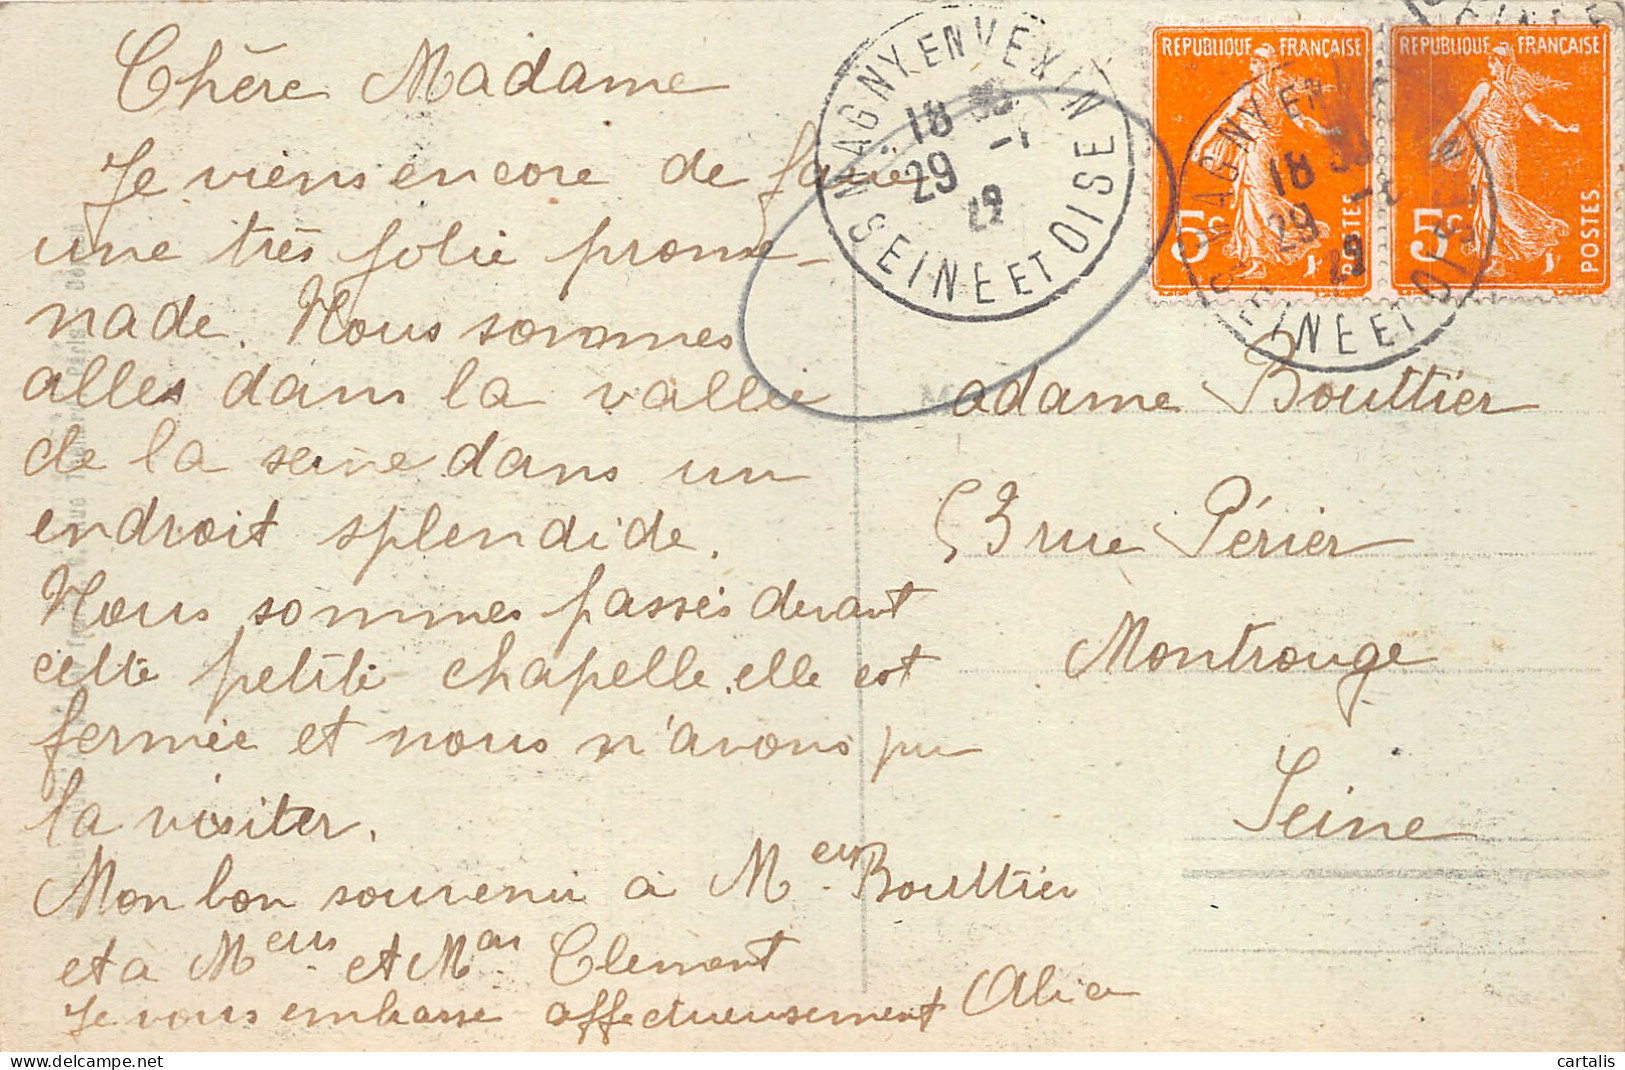 Chère Madame
Je viens encore de faire
une très jolie prome-
nade. Nous sommes
allés dans la vallée
de la seine dans un
endroit splendide.
Nous sommes passés devant
cette petite chapelle. elle est
fermée et nous n'avons pu
la visiter.
Mon bon souvenir à Meur Bouttier
et à Meurs et Mmes Clement
Je vous embrasse affectueusement Alice
MAGNY EN VEXIN
18
29 -1
22
SEINE ET OISE
REPUBLIQUE FRANÇAISE
5c
POSTES
REPUBLIQUE FRANÇAISE
5c
POSTES
Madame Bouttier
53 rue Périer
Montrouge
Seine
cartalis